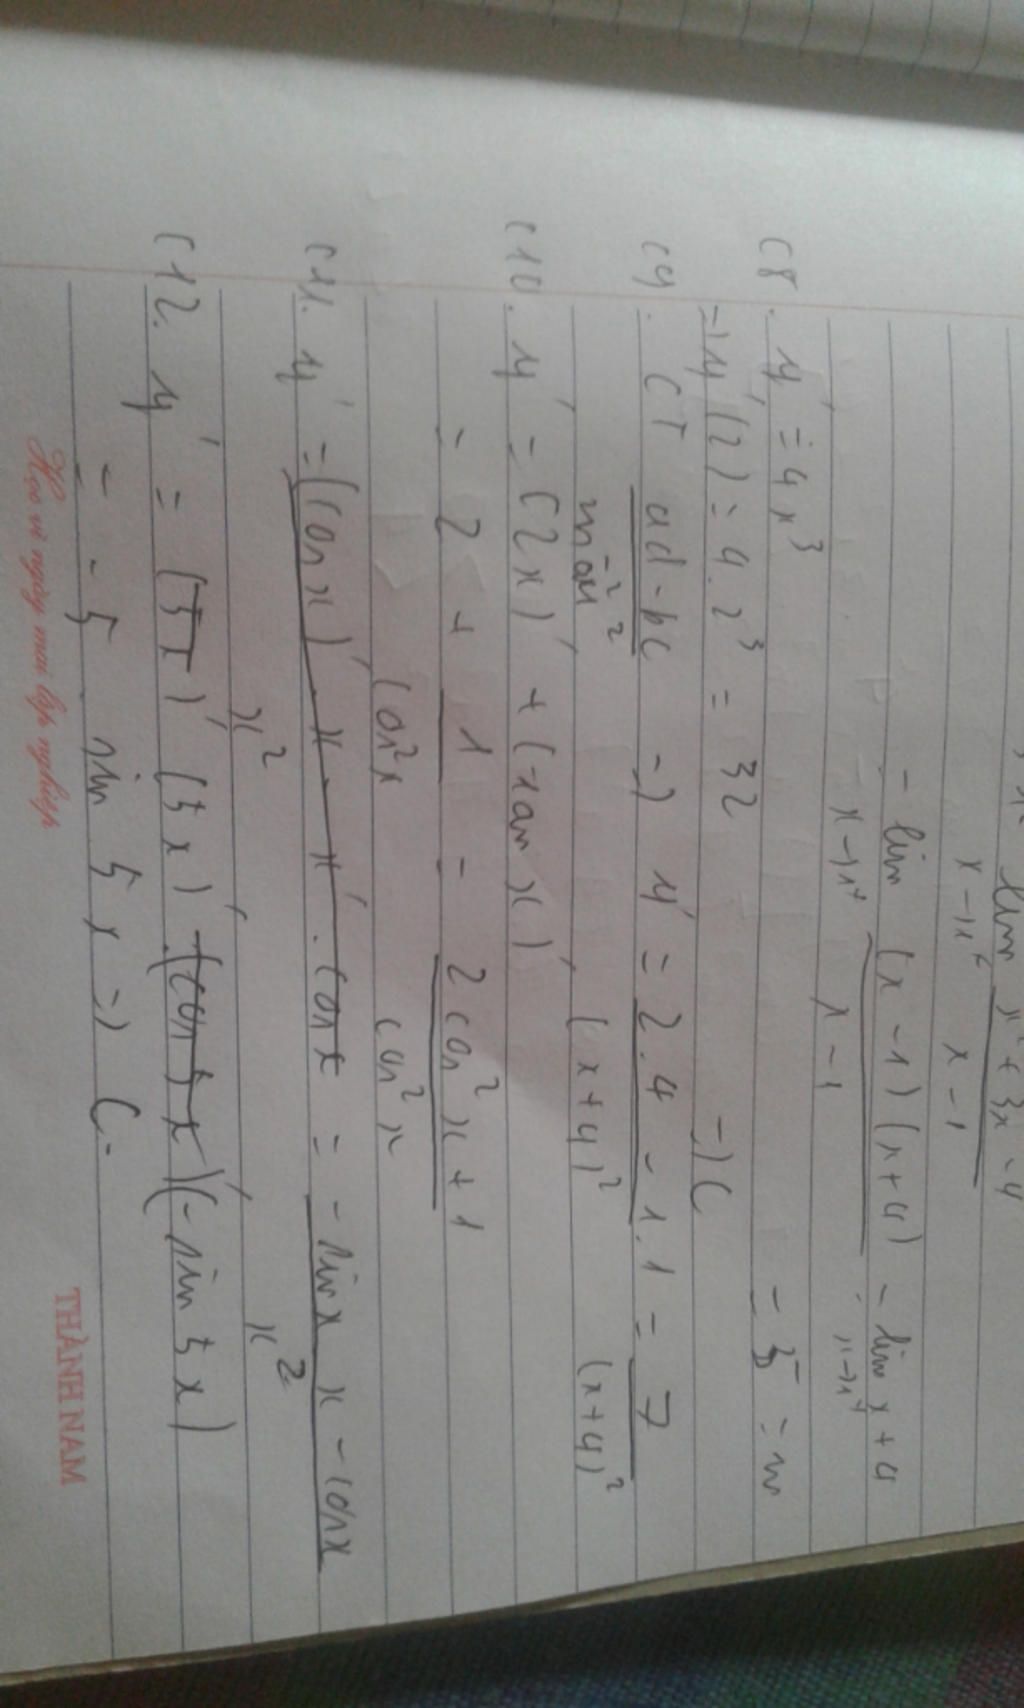 lim x² + 3x - 4
x→1⁺ x - 1
= lim (x - 1)(x + 4) = lim x + 4
x→1⁺ x - 1 x→1⁺
= 5 = m
C8. y' = 4x³
=) y'(2) = 4.2³ = 32
=) C
C9. CT ad - bc =) y' = 2.4 - 1.1 = 7
mâu² (x+4)² (x+4)²
C10. y' = (2x)' + (tan x)'
= 2 + 1 = 2cos²x + 1
cos²x cos²x
C11. y' = (cos x)' x - x' . cos x = - sin x x - cos x
x² x²
C12. y' = (5x)' (5x)' (cos 5x)' (- sin 5x)
= - 5 sin 5x =) C.
Học vì ngày mai lập nghiệp
THÀNH NAM